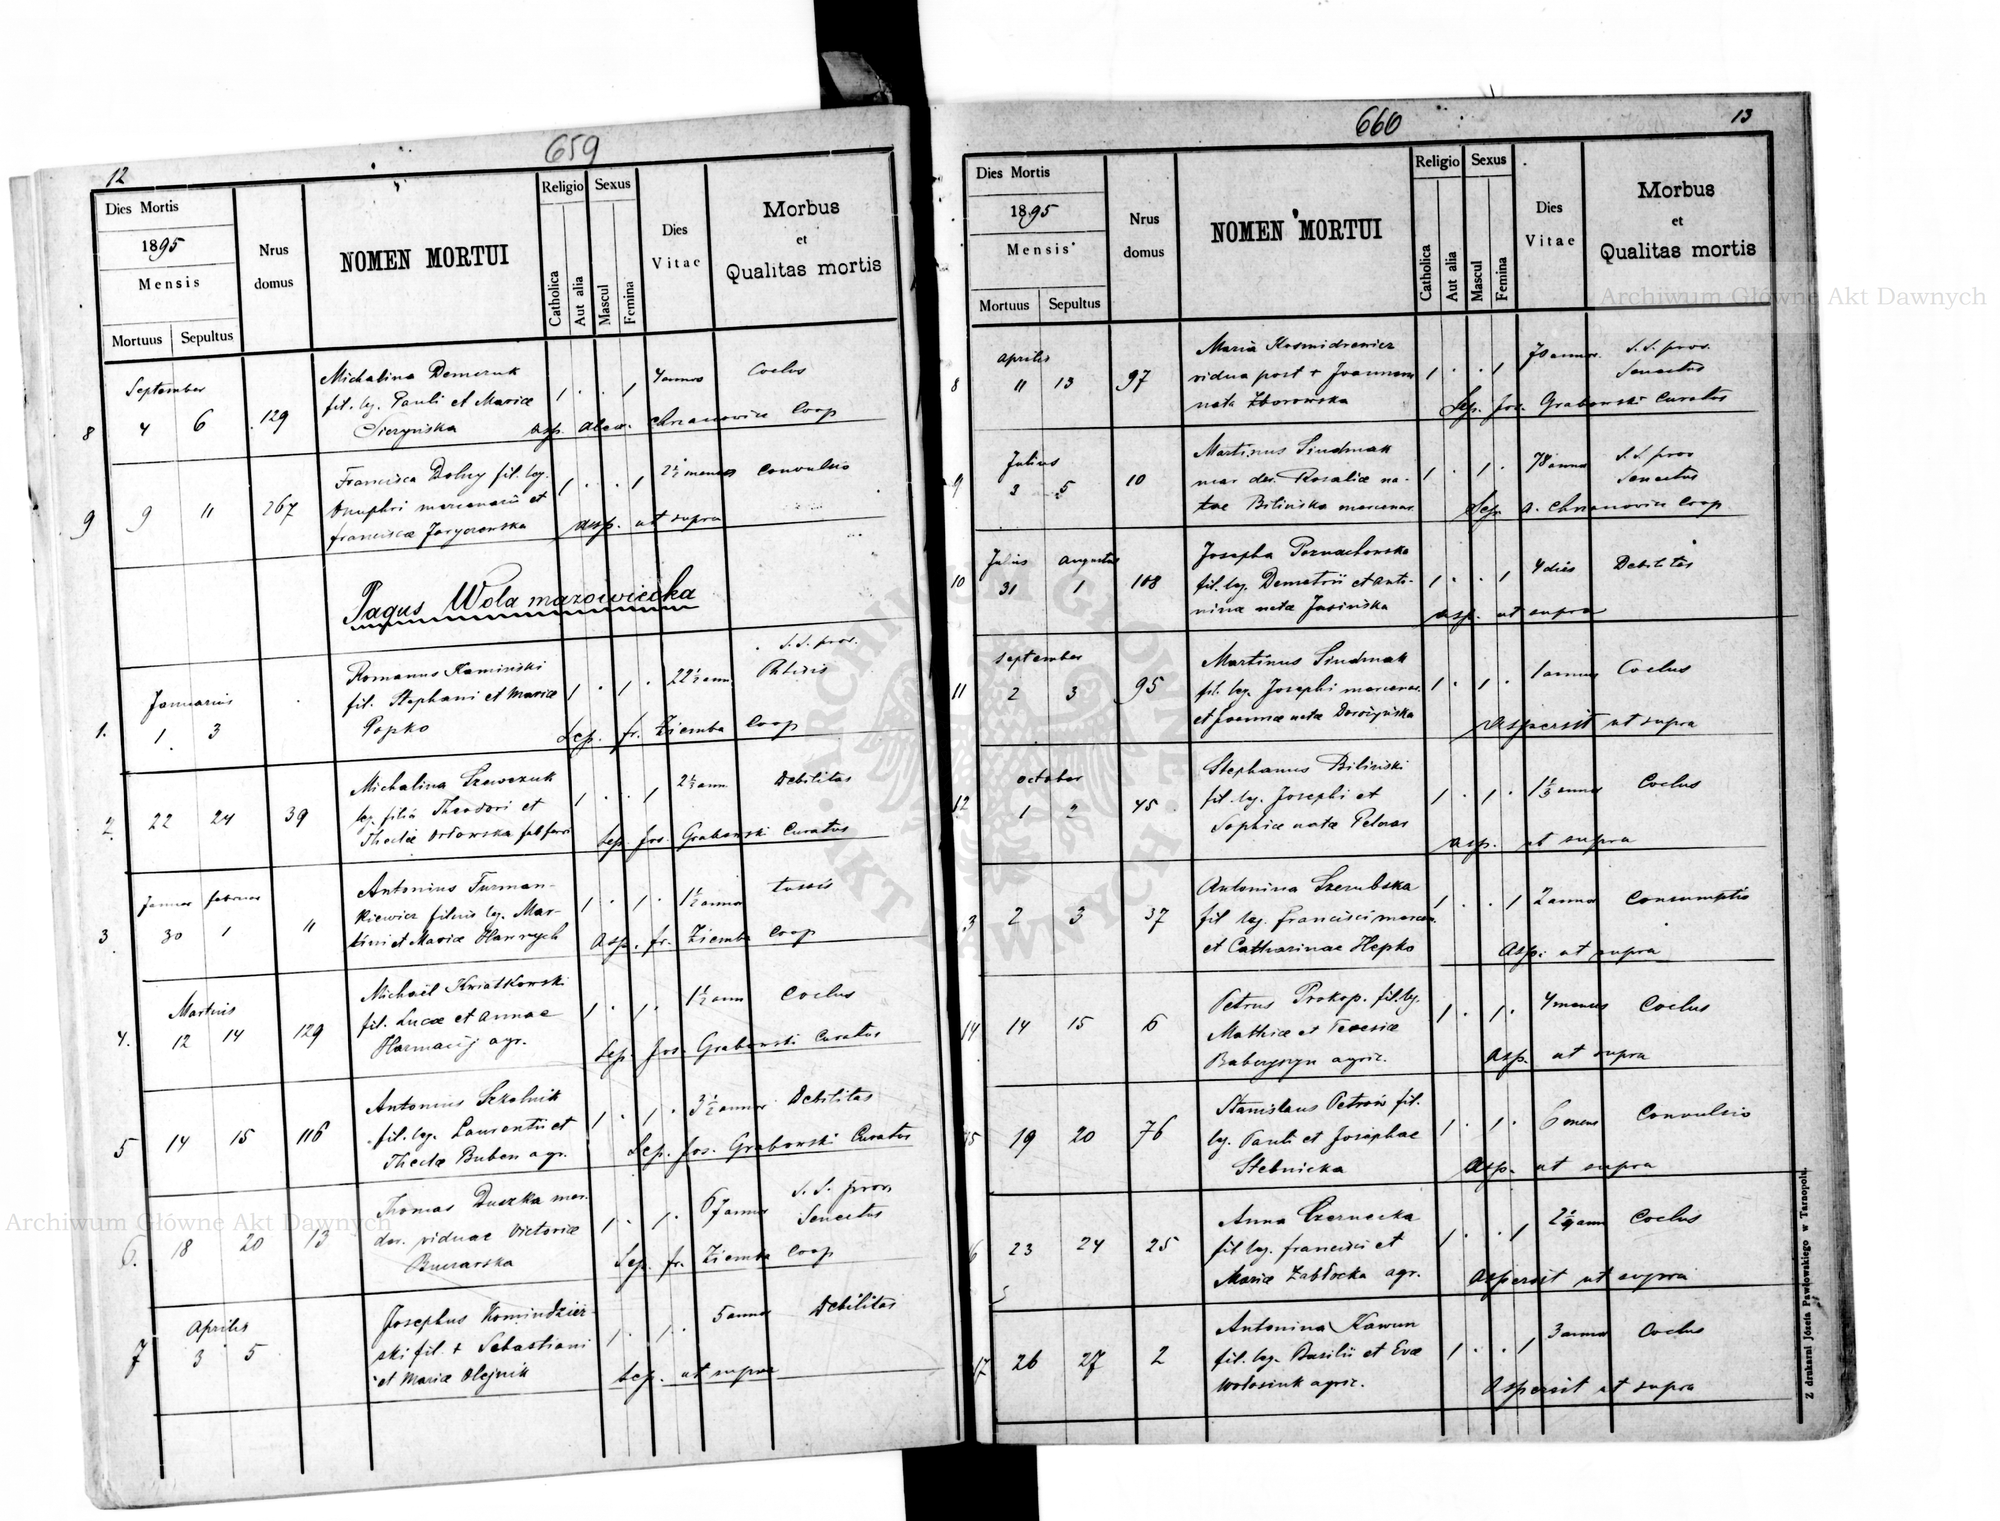 659
12
Dies Mortis
1895
Mensis
Mortuus Sepultus
Nrus
domus
NOMEN MORTUI
Religio
Catholica
Aut alia
Sexus
Mascul
Femina
Dies
Vitae
Morbus
et
Qualitas mortis
September
8 4 6 129
Michalina Demczuk
fil. leg. Pauli et Mariæ
1 . . 1 4 annos Coclus
asp. Alex. Chrzanowicz Coop
9 9 11 267
Francisca Dolny fil. leg.
Onuphri mercenarii et
1 . . 1 2½ menses Convulsio
asp. ut supra
Pagus Wola mazowiecka
Januarius
1. 1. 3
Romanus Kamiński
fil. Stephani et Mariæ
Popko
1 . 1 . 22½ ann.
S.S. prov.
Phtisis
Sep. fr. Ziemba Coop
2 22 24 39
Michalina Szewczuk
leg. filia Theodori et
Theclæ Orłowska
1 . . 1 2½ ann Debilitas
Sep. Jos. Grabowski Curatus
Januar februar
3 30 1 "
Antonius Furman-
kiewicz filius leg. Mar-
tini et Mariæ
1 . 1 . 1½ annor tussis
Asp. fr. Ziemba Coop
Martius
4. 12 14 129
Michaël Kwiatkowski
fil. Lucæ et Annae
Harmacij agr.
1 . 1 . 1½ ann Coclus
Sep. Jos. Grabowski Curatus
5 14 15 116
Antonius Szkolnik
fil. leg. Laurentii et
Theclæ Buben agr.
1 . 1 . 3½ annor Debilitas
Sep. Jos. Grabowski Curatus
6. 18 20 13
Thomas Duczka mar.
der. viduae Victoriæ
1 . 1 . 67 annor
S. S. prov.
Senectus
Sep. fr. Ziemba Coop
Aprilis
7 3 5
Josephus Komindzier-
ski fil + Sebastiani
et Mariæ Olejnik
1 . 1 . 5 annor Debilitas
Sep. ut supra
660
13
Dies Mortis
1895
Mensis
Mortuus Sepultus
Nrus
domus
NOMEN MORTUI
Religio
Catholica
Aut alia
Sexus
Mascul
Femina
Dies
Vitae
Morbus
et
Qualitas mortis
Aprilis
8 11 13 97
Maria Kosmidrewicz
vidua post + Joannem
nata Zborowska
1 . . 1 70 annor.
S.S. prov.
Senectus
Sep. Jos. Grabowski Curatus
Julius
9 3 5 10
Martinus Sindmak
mar der. Rosaliæ na-
tae Bilińska mercenar.
1 . 1 . 78 annor
S.S. prov
Senectus
Sep. A. Chrzanowicz Coop
Julius Augustus
10 31 1 108
Josepha Poznachowska
fil. leg. Demetrii et Anto-
ninæ natæ Jasińska
1 . . 1 4 dies Debilitas
asp. ut supra
September
11 2 3 95
Martinus Sindmak
fil. leg. Josephi mercenar.
et Joannæ natæ
1 . 1 . 1 annus Coclus
Aspersit ut supra
October
12 1 2 45
Stephanus Biliński
fil. leg. Josephi et
Sophiæ natæ
1 . 1 . 1⅓ annor Coclus
asp. ut supra
3 2 3 37
Antonina Szerubska
fil leg. Francisci mercen.
et Catharinae Hepko
1 . . 1 2 annor Consumptio
Asp. ut supra
14 14 15 6
Petrus Prokop. fil. leg.
Mathiæ et Teresiæ
agric.
1 . 1 . 4 menses Coclus
Asp. ut supra
15 19 20 76
Stanislaus Petrów fil.
leg. Pauli et Josephae
Stebnicka
1 . 1 . 6 mens Convulsio
Asp. ut supra
6 23 24 25
Anna Czernecka
fil leg. francisci et
Mariæ Zabłocka agr.
1 . . 1 Coclus
aspersit ut supra
17 26 27 2
Antonina Kawun
fil. leg. Basilii et Evæ
Wołosiuk agric.
1 . . 1 3 annor Coclus
Aspersit ut supra
Z drukarni Józefa Pawłowskiego w Tarnopolu.
Archiwum Główne Akt Dawnych
Archiwum Główne Akt Dawnych
ARCHIWUM GŁÓWNE AKT DAWNYCH